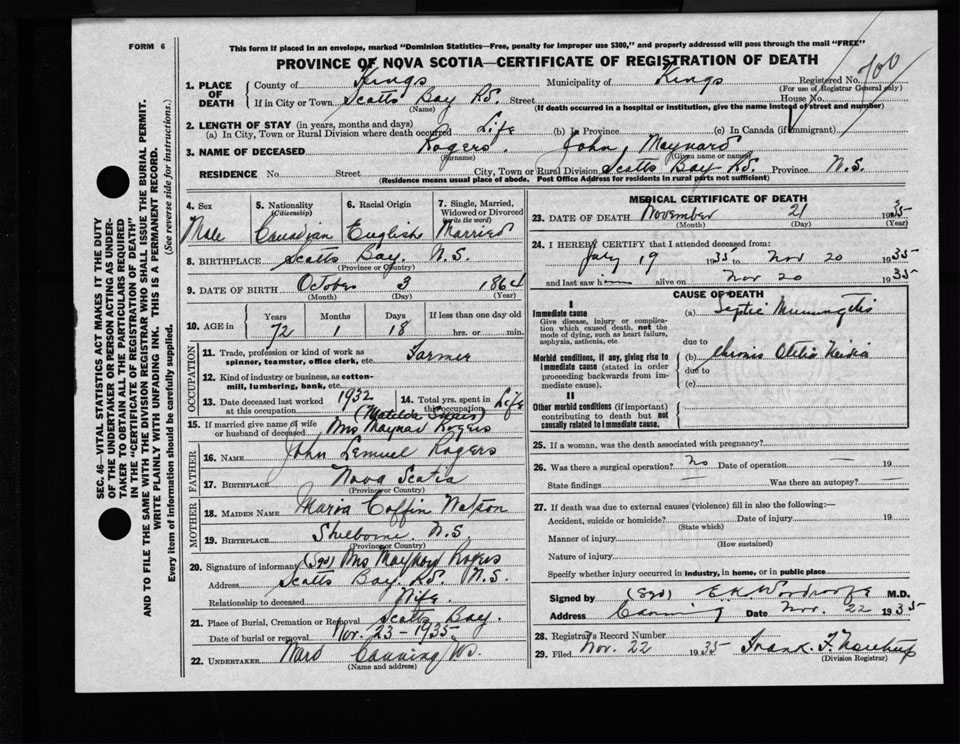 FORM 6
This form if placed in an envelope, marked "Dominion Statistics—Free, penalty for improper use $300," and properly addressed will pass through the mail "FREE"
PROVINCE OF NOVA SCOTIA—CERTIFICATE OF REGISTRATION OF DEATH
SEC. 46—VITAL STATISTICS ACT MAKES IT THE DUTY
OF THE UNDERTAKER OR PERSON ACTING AS UNDER-
TAKER TO OBTAIN ALL THE PARTICULARS REQUIRED
IN THE "CERTIFICATE OF REGISTRATION OF DEATH"
AND TO FILE THE SAME WITH THE DIVISION REGISTRAR WHO SHALL ISSUE THE BURIAL PERMIT.
WRITE PLAINLY WITH UNFADING INK. THIS IS A PERMANENT RECORD.
Every item of information should be carefully supplied. (See reverse side for instructions.)
1. PLACE OF DEATH
County of Kings Municipality of Kings Registered No. 700
(For use of Registrar General only)
If in City or Town Scotts Bay Rd. Street House No.
(Name) (If death occurred in a hospital or institution, give the name instead of street and number)
2. LENGTH OF STAY (in years, months and days)
(a) In City, Town or Rural Division where death occurred Life (b) In Province (c) In Canada (if immigrant)
3. NAME OF DECEASED Rogers. John Maynard
(Surname) (Given name or names)
RESIDENCE No. Street City, Town or Rural Division Scotts Bay Rd. Province N.S.
(Residence means usual place of abode. Post Office Address for residents in rural parts not sufficient)
4. Sex Male
5. Nationality (Citizenship) Canadian
6. Racial Origin English
7. Single, Married, Widowed or Divorced (write the word) Married
8. BIRTHPLACE Scotts Bay. N.S.
(Province or Country)
9. DATE OF BIRTH October 3 1864
(Month) (Day) (Year)
10. AGE in Years Months Days If less than one day old
72 1 18 hrs. or min.
OCCUPATION
11. Trade, profession or kind of work as spinner, teamster, office clerk, etc. Farmer
12. Kind of industry or business, as cotton-mill, lumbering, bank, etc.
13. Date deceased last worked at this occupation 1932
14. Total yrs. spent in this occupation Life
15. If married give name of wife or husband of deceased Mrs. Maynard Rogers
FATHER
16. NAME John Lemuel Rogers
17. BIRTHPLACE Nova Scotia
(Province or Country)
MOTHER
18. MAIDEN NAME Maria Coffin Watson
19. BIRTHPLACE Shelborne. N.S
(Province or Country)
20. Signature of informant (Sgd) Mrs Maynard Rogers
Address Scotts Bay. Rd. N.S.
Relationship to deceased Wife.
21. Place of Burial, Cremation or Removal Scotts Bay.
Date of burial or removal Nov. 23 - 1935
22. UNDERTAKER Ward Canning
(Name and address)
MEDICAL CERTIFICATE OF DEATH
23. DATE OF DEATH November 21 1935
(Month) (Day) (Year)
24. I HEREBY CERTIFY that I attended deceased from:
July 19 1935 to Nov 20 1935
and last saw h alive on Nov 20 1935
CAUSE OF DEATH
I
Immediate cause
Give disease, injury or complication which caused death, not the mode of dying, such as heart failure, asphyxia, asthenia, etc.
(a) Septic Meningitis
due to
Morbid conditions, if any, giving rise to immediate cause (stated in order proceeding backwards from immediate cause).
(b) Chronic Otitis Media
due to
(c)
II
Other morbid conditions (if important) contributing to death but not causally related to immediate cause.
25. If a woman, was the death associated with pregnancy?
26. Was there a surgical operation? No Date of operation 19
State findings Was there an autopsy?
27. If death was due to external causes (violence) fill in also the following:—
Accident, suicide or homicide? Date of injury 19
(State which)
Manner of injury
(How sustained)
Nature of injury
Specify whether injury occurred in industry, in home, or in public place
Signed by (Sgd) E.K. Woodroofe M.D.
Address Canning Date Nov. 22 1935
28. Registrar's Record Number
29. Filed Nov. 22 1935 Frank F. Northup
(Division Registrar)